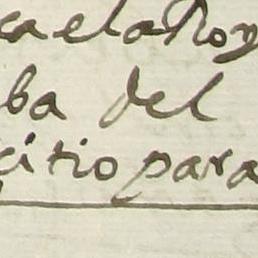 ca ela Roy
ba del
citio para